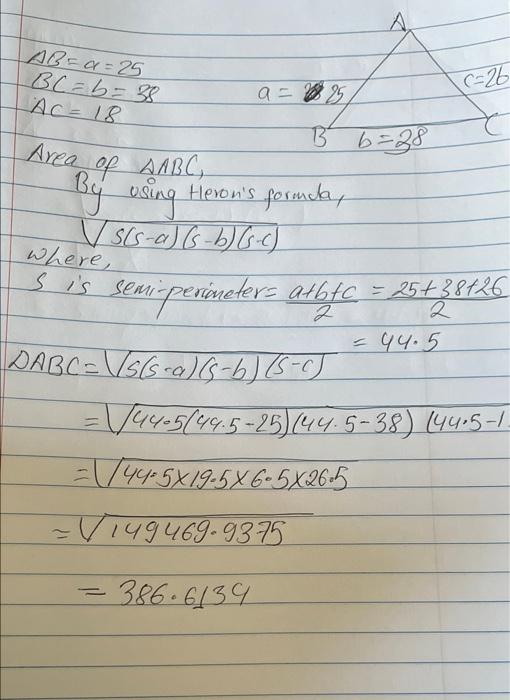 A
AB = a = 25
BC = b = 38
AC = 18
a = 25
c = 26
B
b = 38
C
Area of ΔABC,
By using Heron's formula,
√s(s-a)(s-b)(s-c)
where,
s is semi-perimeter = a+b+c/2 = 25+38+26/2
= 44.5
ΔABC = √s(s-a)(s-b)(s-c)
= √44.5(44.5-25)(44.5-38)(44.5-1
= √44.5×19.5×6.5×26.5
= √149469.9375
= 386.6134